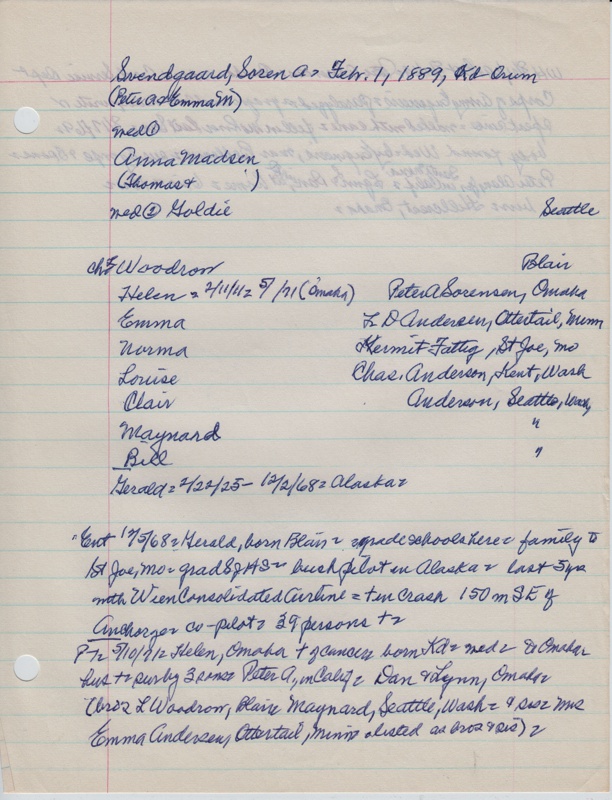 Svendgaard, Soren A = Feb. 1, 1889, Kd- Orum
(Peter A & Emma M)
med ①
Anna Madsen
(Thomas & )
med ② Goldie Seattle
ch: Woodrow Blair
Helen = 2/11/11 = 5/71 (Omaha) Peter A Sorensen, Omaha
Emma L D Andersen, Ottertail, Minn
Norma Kermit Fattig, St Joe, Mo
Louise Chas. Anderson, Kent, Wash
Clair Anderson, Seattle, Wash
Maynard "
Bill "
Gerald = 2/22/25 - 12/2/68 = Alaska =
"Ent 12/5/68 = Gerald, born Blair = grade schools here = family to
St Joe, Mo = grad HS = bush pilot in Alaska = last 5 yrs
with Wien Consolidated Airline = + in crash 150 m SE of
Anchorage = co-pilot = 39 persons + =
5/10/71 = Helen, Omaha + of cancer born Kd = med = to Omaha
hus + = surv by 3 sons = Peter A, in Calif = Dan & Lynn, Omaha =
(bros L Woodrow, Blair Maynard, Seattle, Wash = & sis = Mrs
Emma Andersen, Ottertail, Minn = listed as bros & sis) =